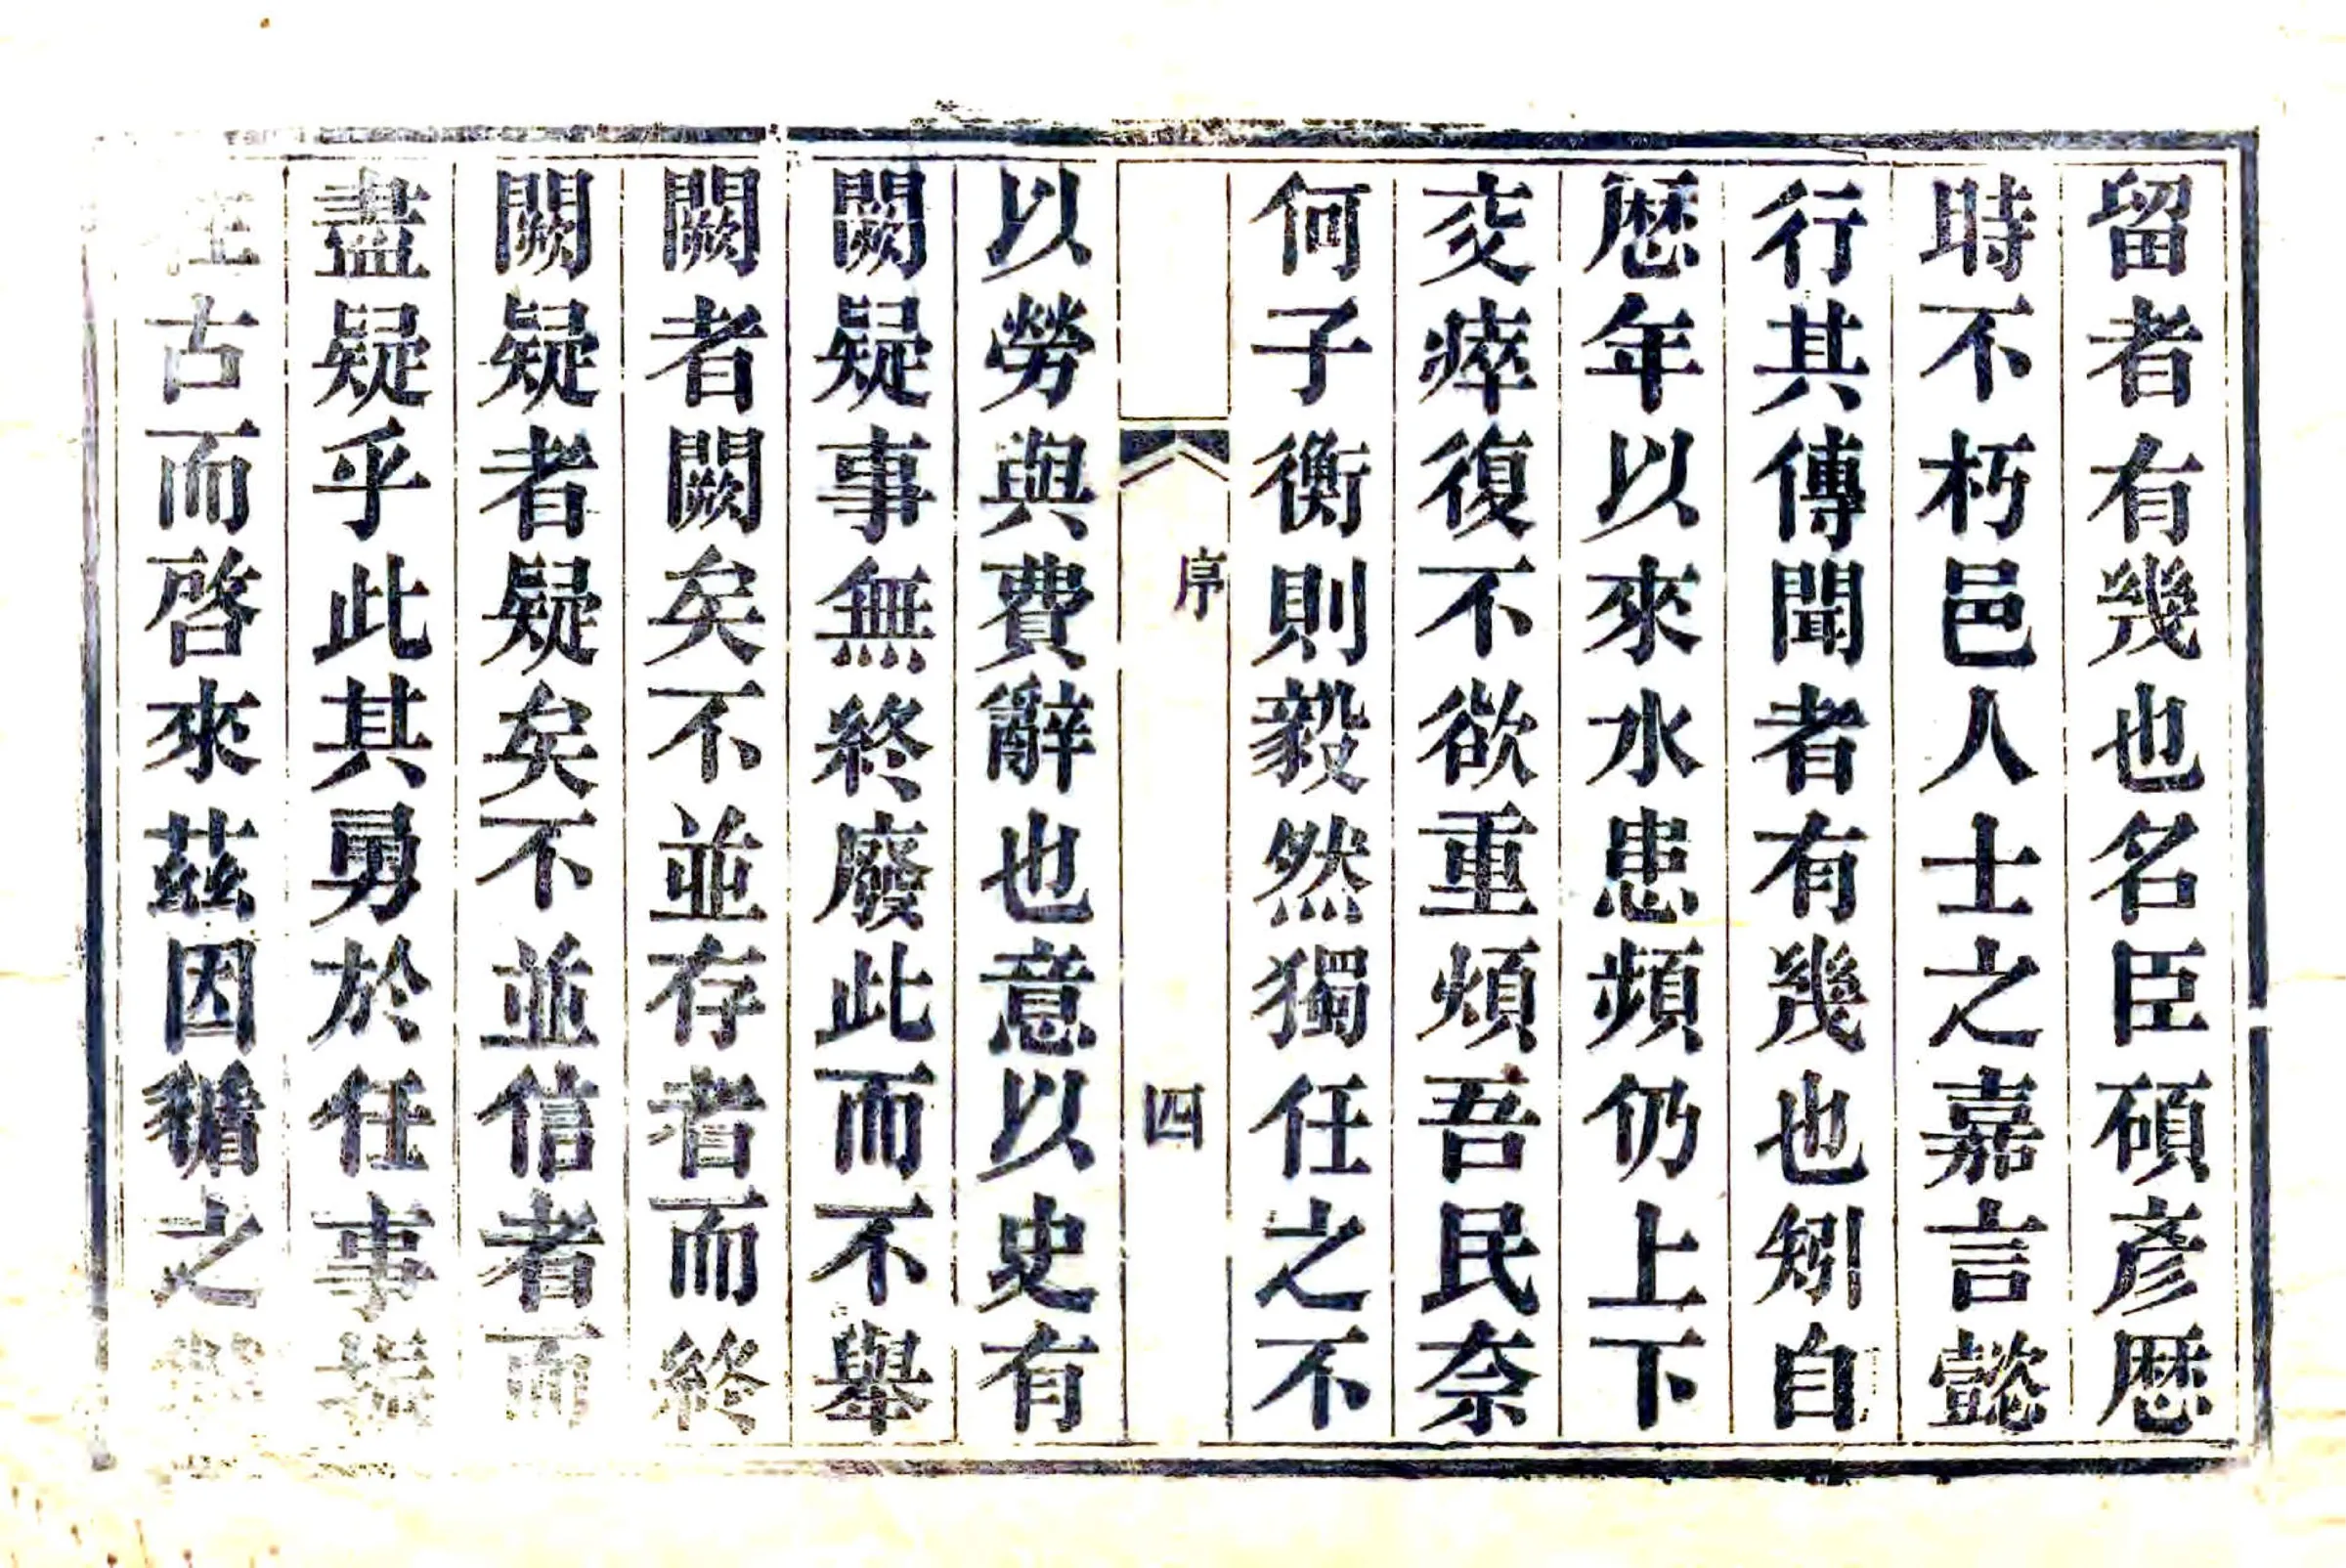 留者有幾也名臣碩彥厯
時不朽邑人士之嘉言懿
行其傳聞者有幾也矧自
厯年以來水患頻仍上下
交瘁復不欲重煩吾民奈
何子衡則毅然獨任之不
序
四
以勞與費辭也意以史有
闕疑事無終廢此而不舉
闕者闕矣不並存者而終
闕疑者疑矣不並信者而
盡疑乎此其勇於任事振
往古而啓來茲因循之